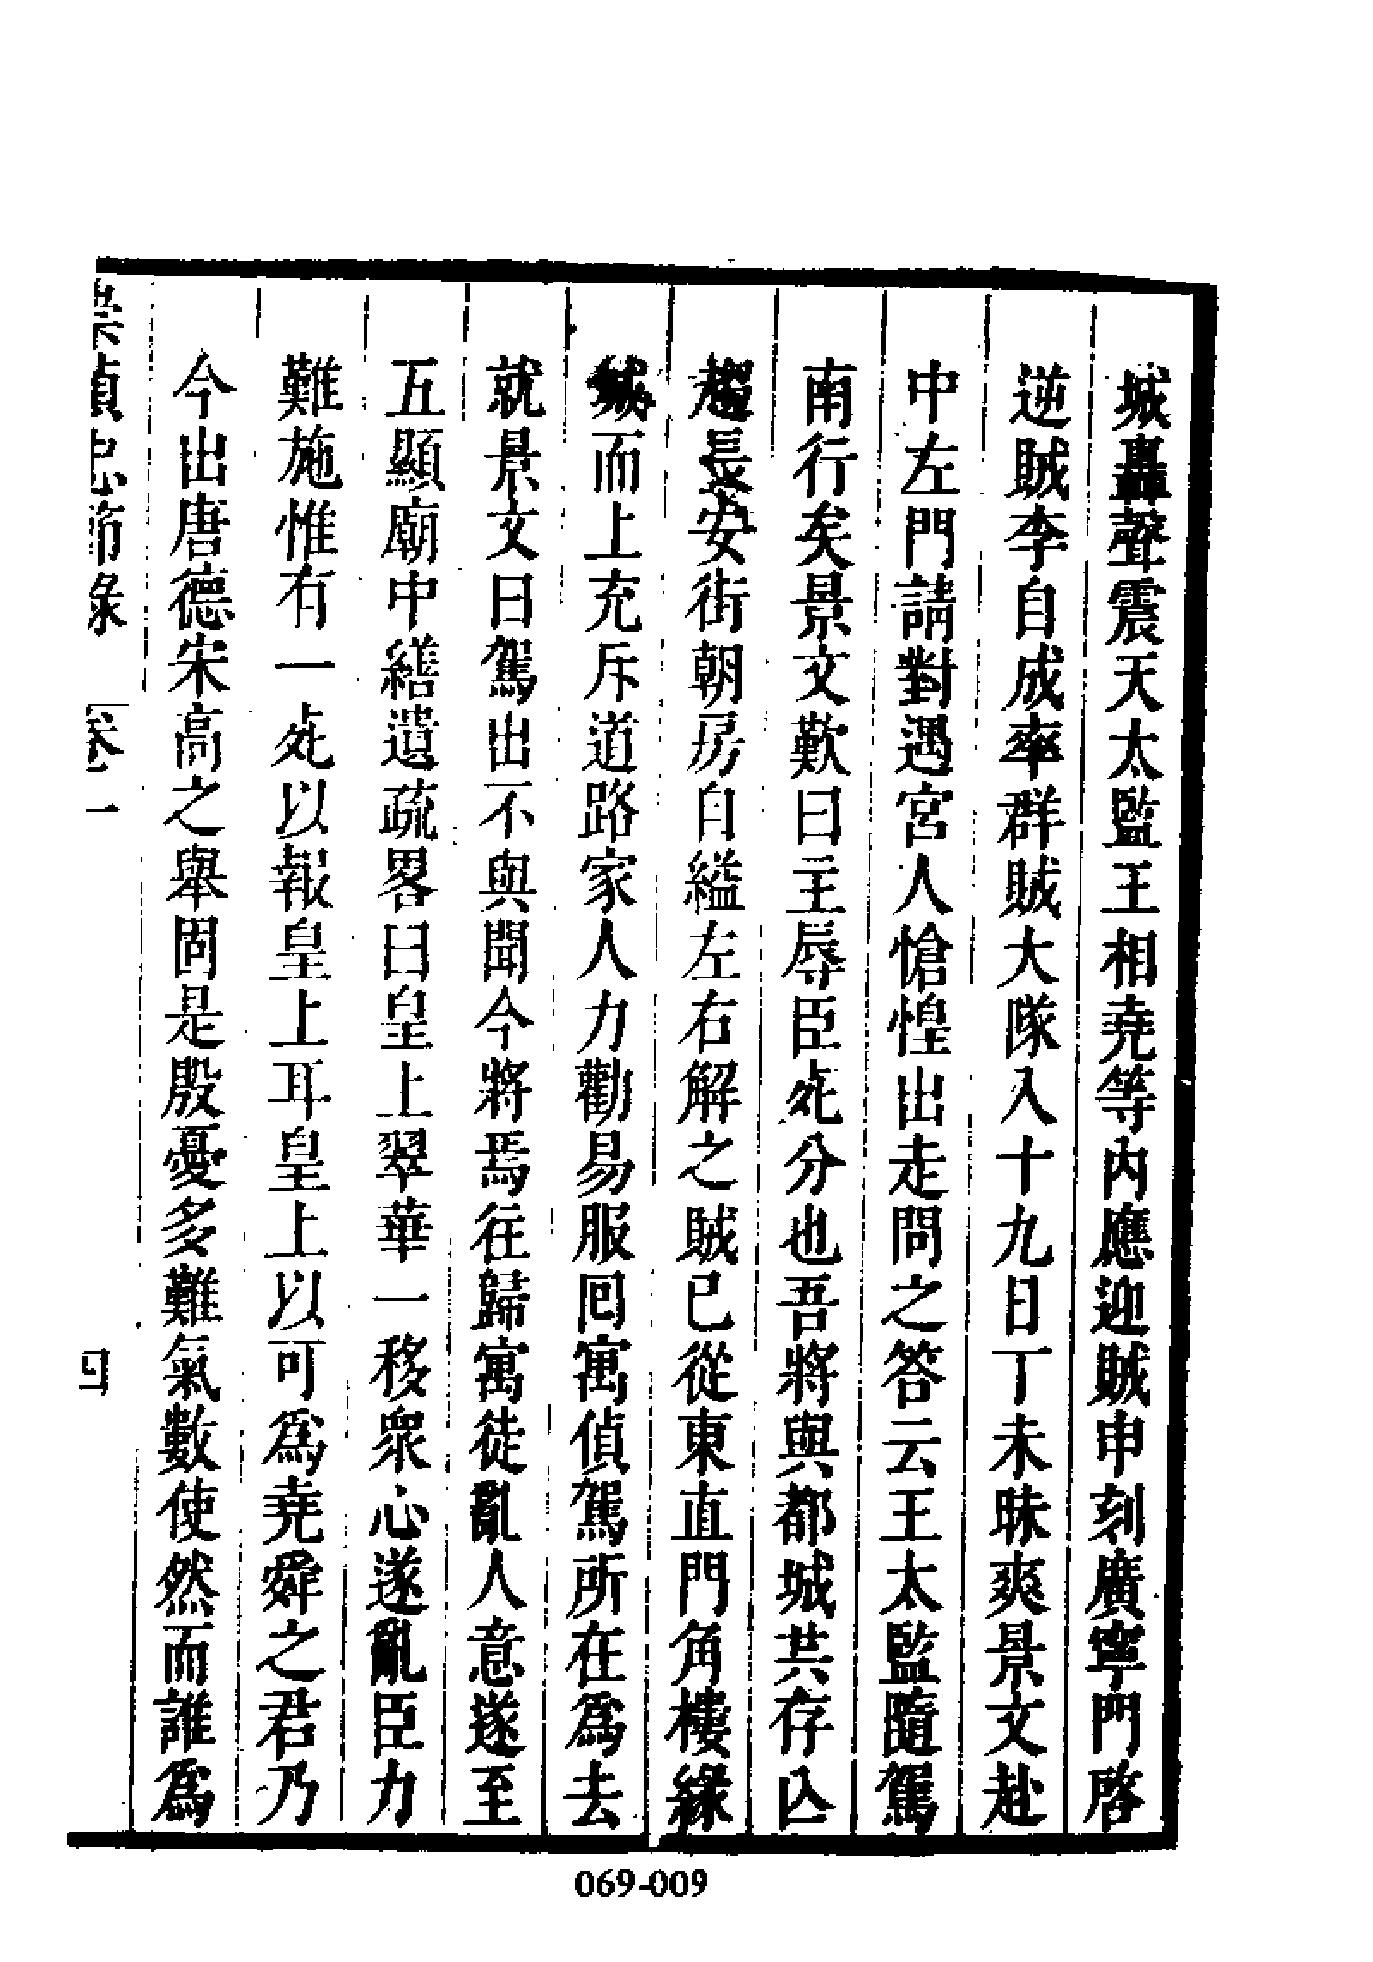 城轟聲震天太監王相堯等內應迎賊申刻廣寧門啓
逆賊李自成率群賊大隊入十九日丁未昧爽景文赴
中左門請對遇宮人愴惶出走問之答云王太監隨駕
南行矣景文歎曰主辱臣死分也吾將與都城共存亾
趨長安街朝房自縊左右解之賊已從東直門角樓緣
城而上充斥道路家人力勸易服囘寓偵駕所在為去
就景文曰駕出不與聞今將焉往歸寓徒亂人意遂至
五顯廟中繕遺疏畧曰皇上翠華一移衆心遂亂臣力
難施惟有一死以報皇上耳皇上以可爲堯舜之君乃
今出唐德宋高之舉固是殷憂多難氣數使然而誰爲
崇禎忠節錄 卷一 四
069-009